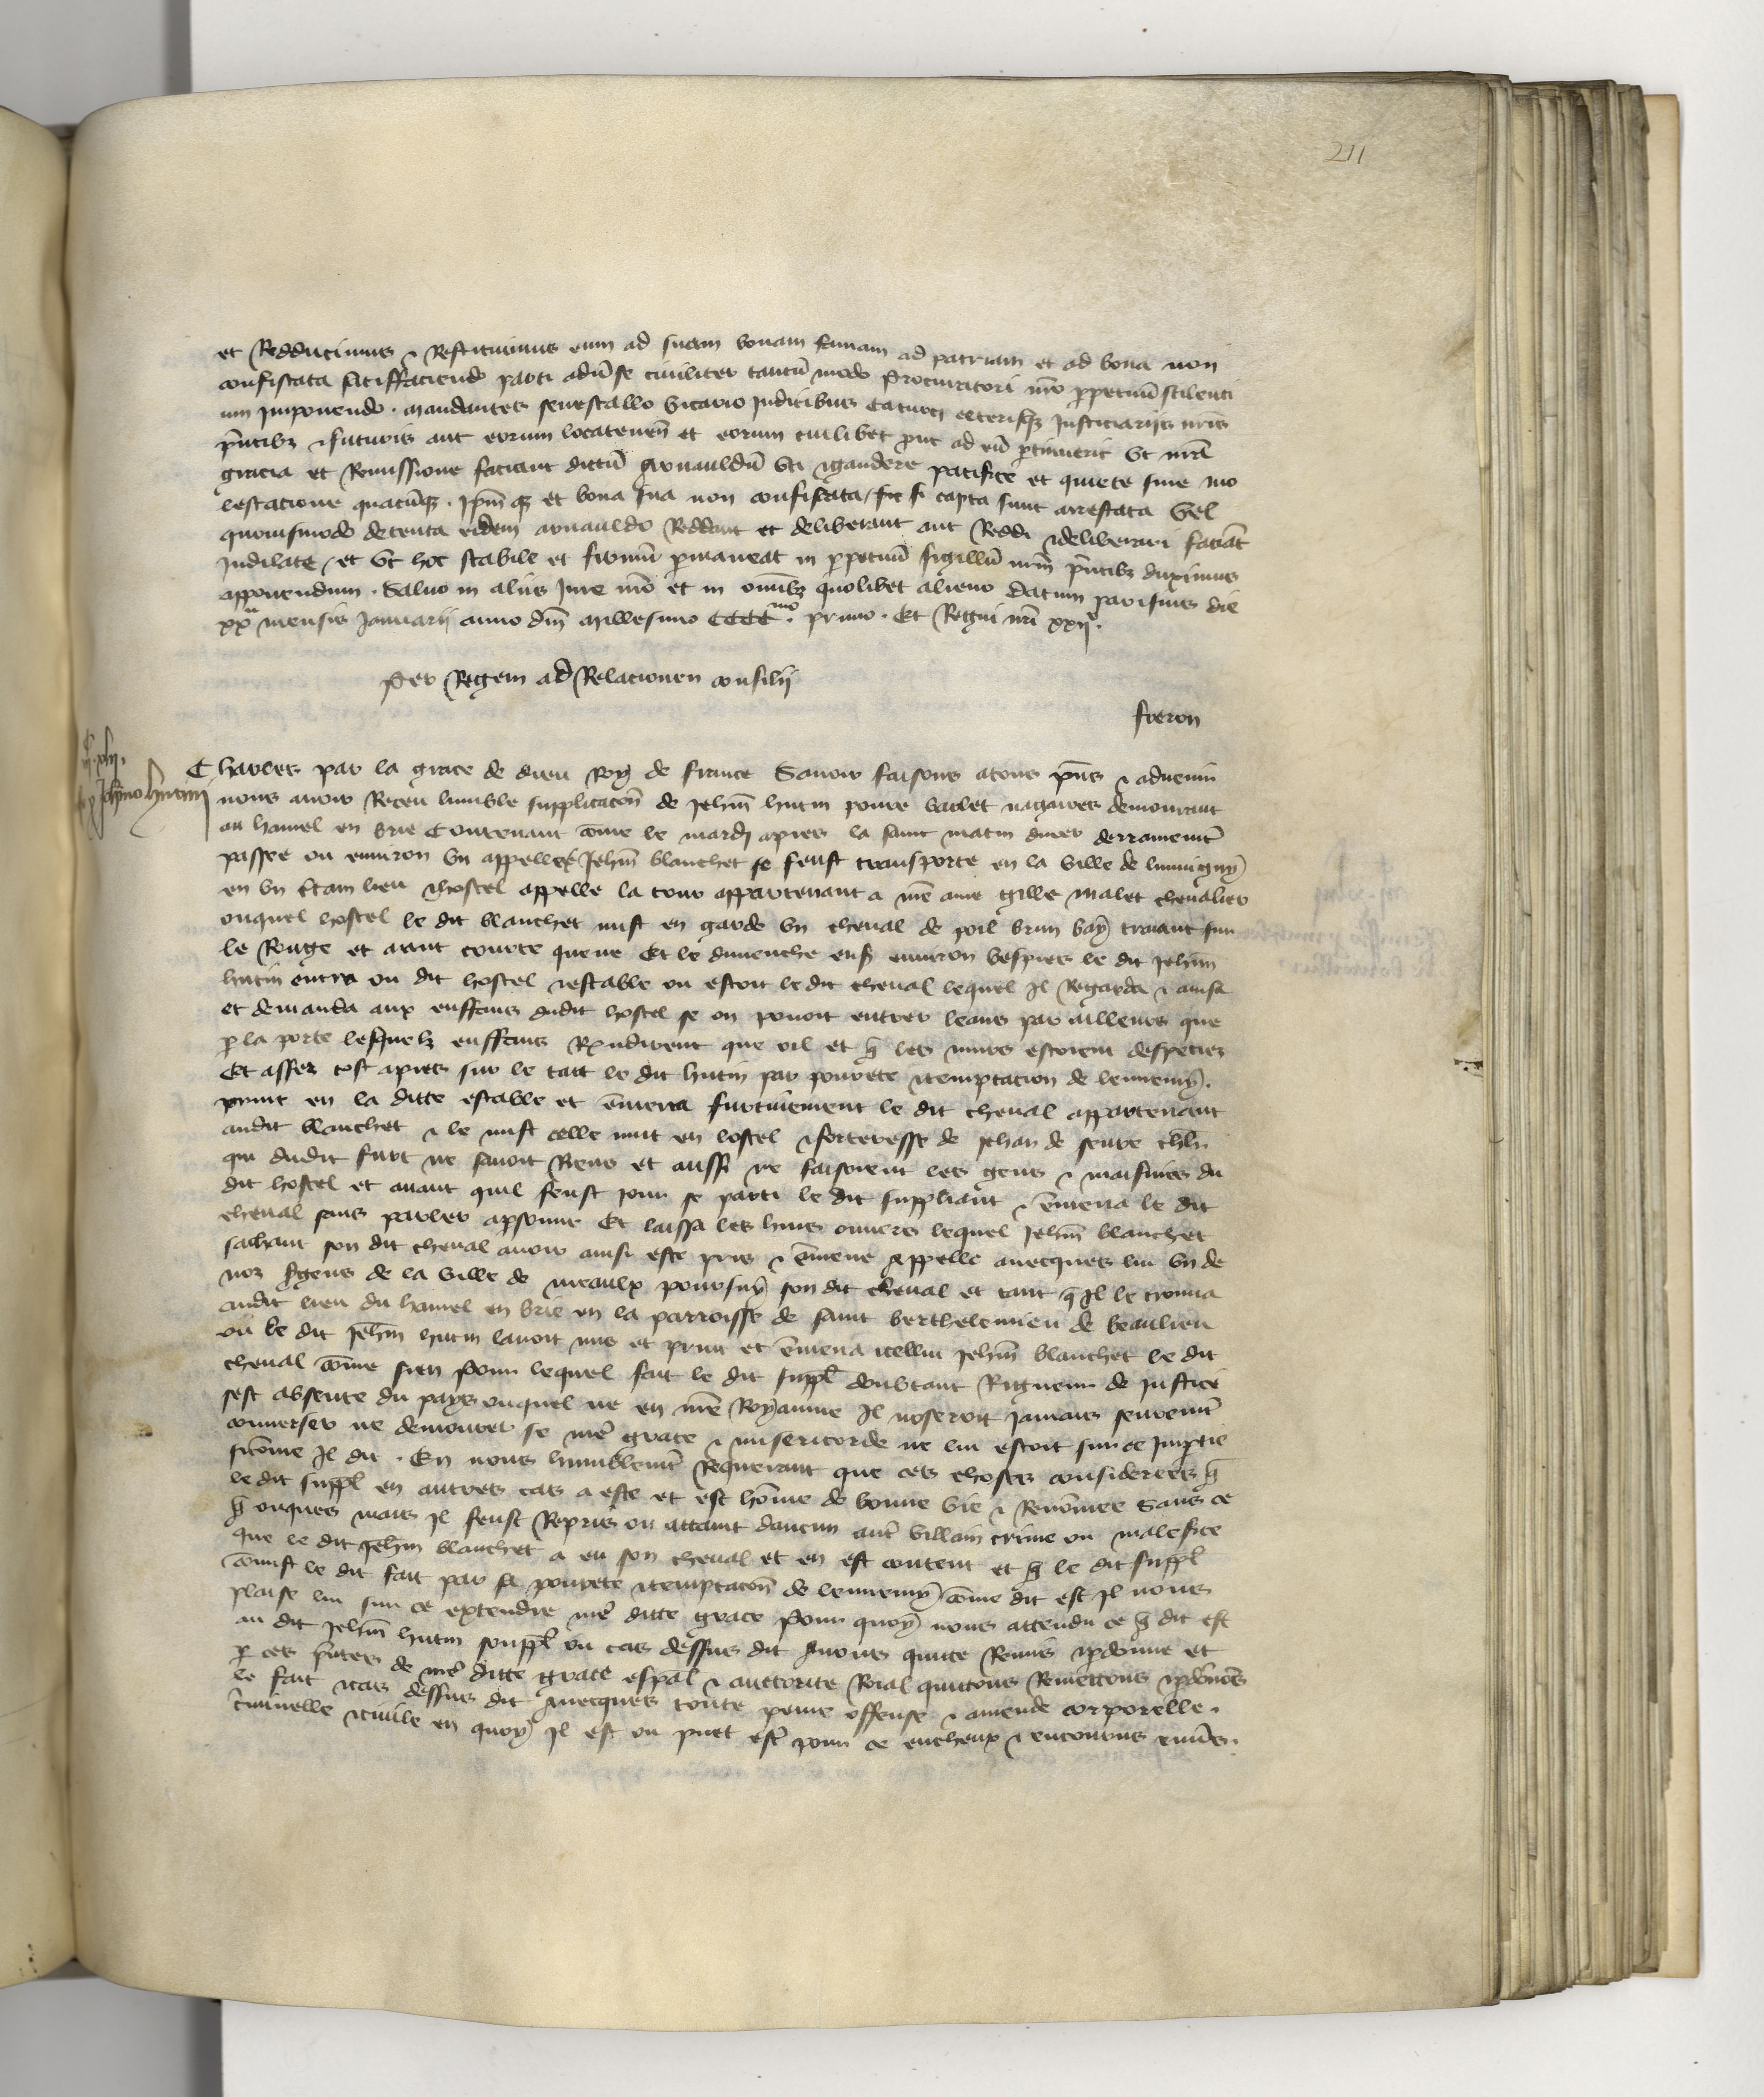 211
et Redducimus & Restituimus eum ad suam bonam famam ad patriam et ad bona non
confiscata satiffaciendo parti adūse ciuiliter tantū modo procuratori nr̄o ꝑpetuū silenci
um Imponendo . mandantes senescallo vicario Judicibus ceterisqꝫ Justiciariis nr̄is
pn̄tibꝫ & futuris aut eorum locatenen̄ et eorum cuilibet put ad eū ꝑtinuerit vt nr̄a
gracia et Remissione faciant dictū Arnauldū vti & gaudere pacifice et quiete sine mo
lestacione quacūqꝫ . Ip̄m qꝫ et bona sua non confiscata / sic si capta sunt arrestata vel
quouismodo detenta eidem arnauldo Reddant et deliberant aut Reddi & deliberari faciāt
Indilate / et vt hoc stabile et firmū ꝑmaneat in ꝑpetuū sigillū nr̄m pn̄tibꝫ duximus
apponendum . Saluo in aliis Jure nr̄o et in om̄ibꝫ quolibet alieno Datum parisius die
xxa mensis Januarii anno dn̄i millesimo CCCCmo . primo . Et Regni nr̄i xxijo .
Per Regem ad Relacionem consilij
freron
Charles par la grace de dieu Roy de france Sauoir faisons atous pn̄s & aduenir
nous auoir Receu lumble supplicacōn de Jehan hutin poure varlet nagaires demourant
au hamel en brie Contenant cōme le mardi apres la saint matin diuer derrainemt
passee ou enuiron vn appelle Jehan blanchet se feust transporte en la ville de lumigny
en vn c̄tain lieu & hostel appelle la tour appartenant a nr̄e ame gille malet cheualier
ouquel hostel le dit blanchet mist en garde vn cheual de poil brun bay traiant sur
le Rouge et aiant courte queue Et le dimenche ens enuiron vespres le dit Jehan
hutin entra ou dit hostel & estable ou estoit le dit cheual lequel Il Regarda & auisa
et demanda aux enffans dudit hostel se on pouoit entrer leans par ailleurs que
ꝑ la porte lesquelz enffans Rn̄dirent que oil et q̄ les murs estoient despeciez
Et assez tost apres sur le tart le dit hutin par pourete & temptacion de lennemy .
print en la ditte estable et ēmena furtiuement le dit cheual appartenant
audit blanchet & le mist celle nuit en lostel & forteresse de Jehan de
qui dudit furt ne sauoit Riens et aussi ne faisoient les gens & maisnies du
dit hostel et auant quil feust jour se parti le dit suppliant & ēmena le dit
cheual sans parler apersonne Et laissa les huis ouuers lequel Jehan blanchet
sachant son dit cheual auoir ainsi este pris & ēmene appelle auecques lui vn de
noz sergens de la ville de meaulx poursuy son dit cheual et tant q̄ Il le trouua
audit lieu du hamel en brie en la parroisse de saint berthelemieu de beaulieu
ou le dit Jehan hutin lauoit mis et print et ēmena icellui Jehan blanchet le dit
cheual cōme sien Pour lequel fait le dit suppl̄ doubtant Rigueur de Justice
sest absente du pays ouquel ne en nr̄e Royaume Il noseroit Jamais seuremt
conuerser ne demourer se nr̄e grace & misericorde ne lui estoit sur ce Impartie
sicōme Il dit . En nous humblemt Requerant que ces choses considerees q̄
le dit suppl̄ en autres cas a este et est hōme de bonne vie & Renōmee Sans ce
q̄ onques mais Il feust Repris ou attaint daucun aut̄ villain crime ou malefice
que le dit Jehan blanchet a eu son cheual et en est content et q̄ le dit suppl̄
cōmist le dit fait par sa pourete & temptacōn de lennemy cōme dit est Il nous
plaise lui sur ce extendre nr̄e ditte grace Pour quoy nous attendu ce q̄ dit est
au dit Jehan hutin suppl̄ ou cas dessus dit Auons quitte Remis & ꝑdonne et
ꝑ ces pn̄tes de nr̄e ditte grace espāl & auctorite Roial quittons Remettons & ꝑdōnons
le fait & cas dessus dit Auecques toute peine offense & amende corporelle .
c̄iminelle & ciuile en quoy Il est ou puet est̄ pour ce encheux & encourus enūs .